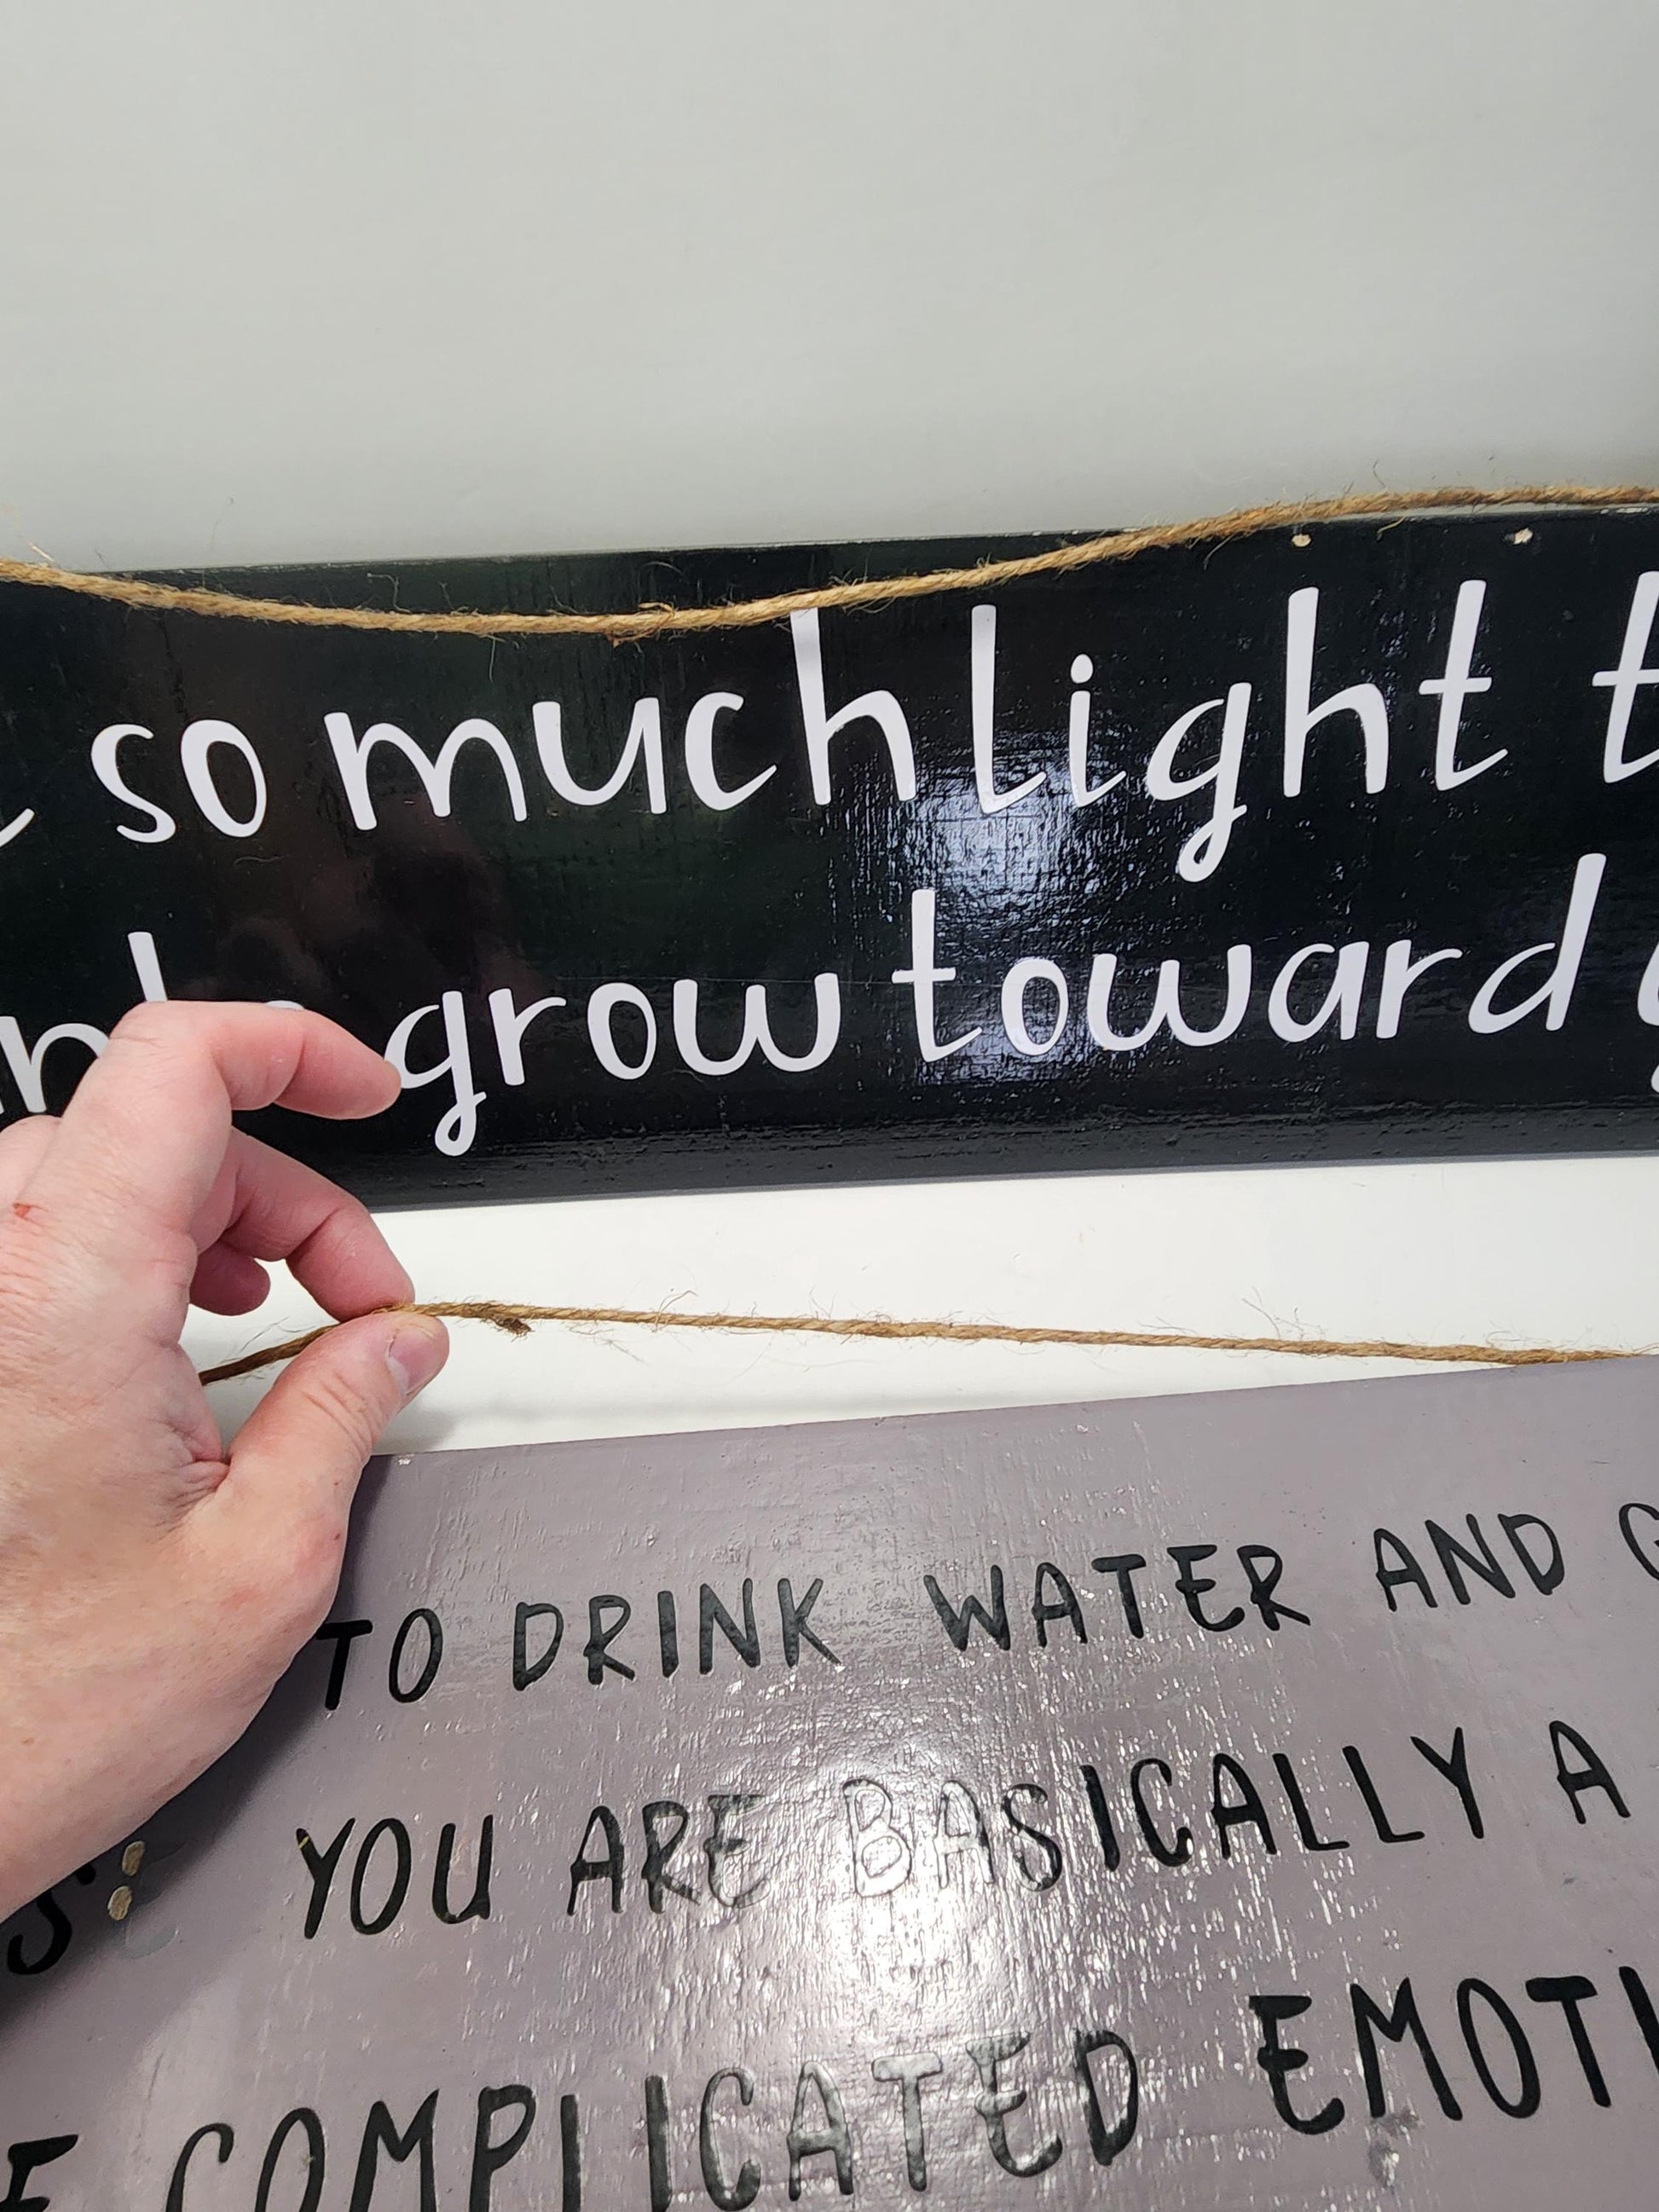 so much light
grow toward
TO DRINK WATER AND
YOU ARE BASICALLY A
COMPLICATED